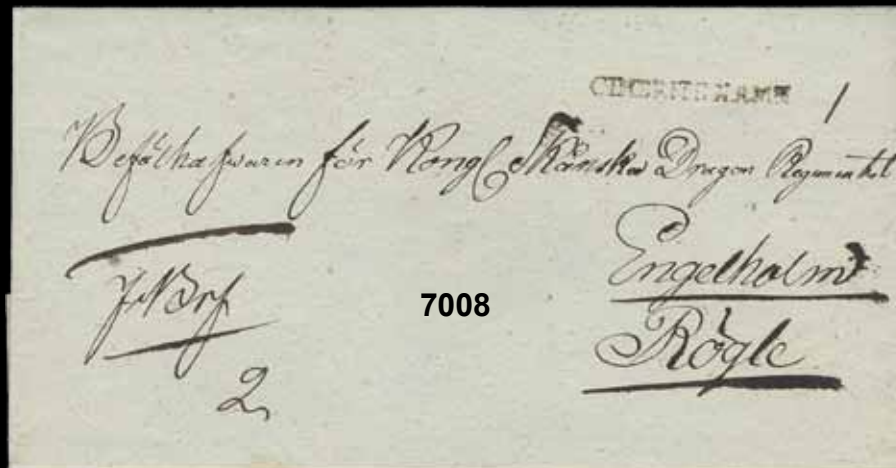 CIMBRITSHAMN
1
Befälhafwaren för Kongl Skånska Dragon Regimentet
Engelholm
FrBrf
7008
Rögle
2